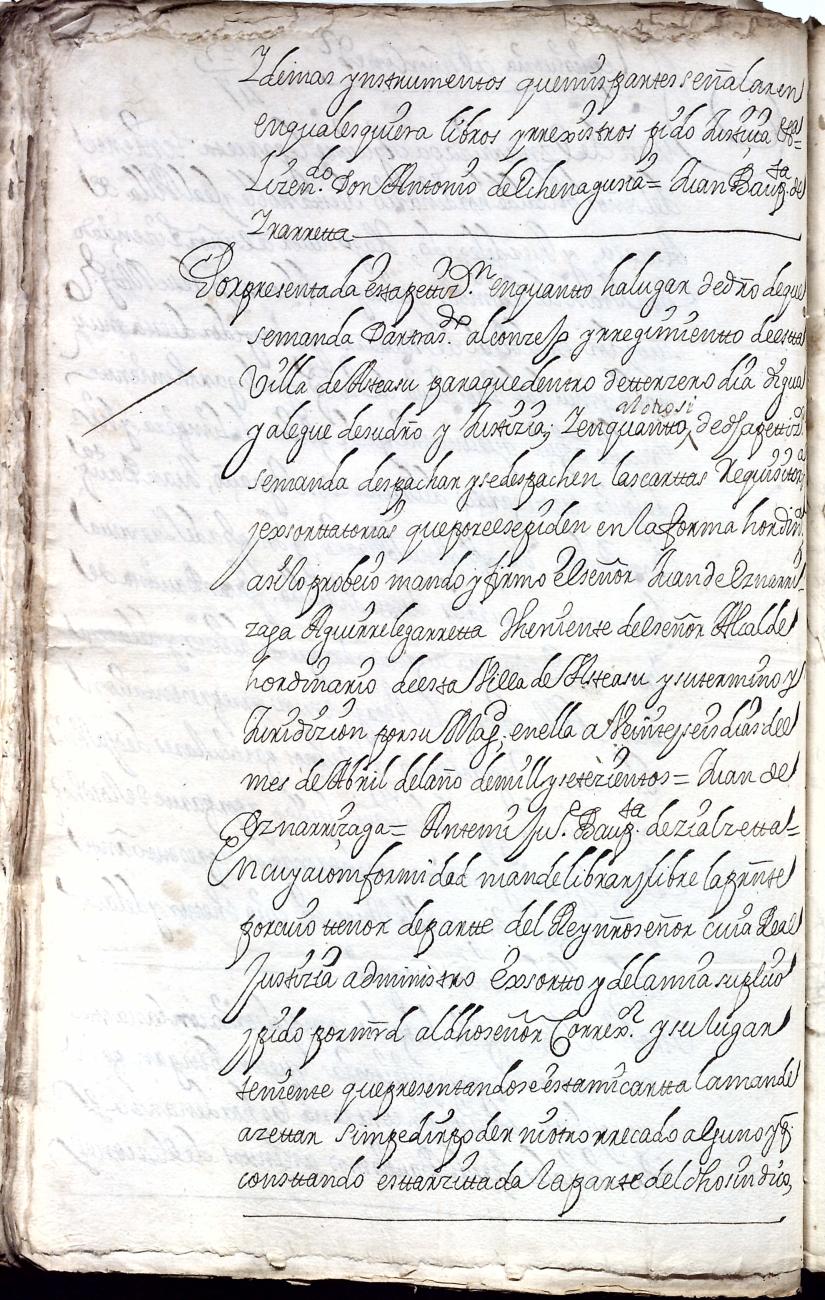 Y demas ynstrumentos que mis partes señalaren
en qualesquiera libros y rrexistros pido Justicia etta=
Lizen.do Don Antonio de Echenagusia= Juan Baup.ta de
Yrarretta
Por presentada esta petiz.on en quantto ha lugar de dro de que
se manda dar tras.do al conzejo y rregimientto de estta
Villa de Asteasu para que dentro de terzero dia diga
y alegue de su dro y Justizia; Y en quantto, al otrosi de dha pettiz.on
se manda despachar y se despachen las carttas Requisitor.as
y exsorttatorias que por ese piden en la forma hordin.a
asi lo probeio mando y firmo el señor Juan de Eznarri-
zaga Aguirre legarretta theniente del señor Alcalde
hordinario de esta Villa de Asteasu y su termino y
Juridizion por su Mag.d en ella a Veinte y seis dias del
mes de Abril del año de mill y setezientos= Juan de
Eznarrizaga= Antemi Ju.o Baup.ta de zialzetta=
En cuya comformidad mande librar y libre la press.te
por cuio tenor de partte del Rey nro señor cuia Real
Justizia administro exsortto y de la mia suplico
y pido por mrd al dho señor Correx.or y su lugar
teniente que presentandose esta mi cartta la mande
azettar sin pedir poder ni otro rrecado alguno y q.
consttando estar zittada la parte del dho sindico,